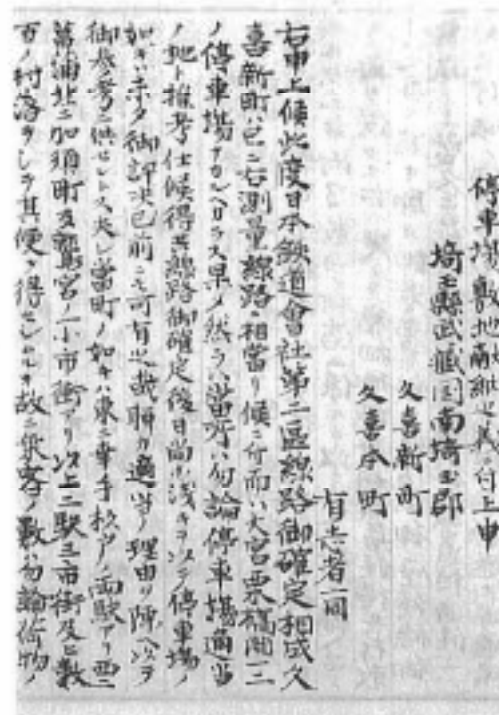 停車場敷地献納之義ニ付上申
埼玉縣武藏国南埼玉郡
久喜新町
久喜本町
有志者一同
右申上候此度日本鉄道會社第二區線路御確定相成久
喜新町ハ已ニ右測量線路ニ相當リ候ニ付而ハ大宮栗橋間一二
ノ停車場ナカルヘカラス果シテ然ラハ當町ハ勿論停車場適當
ノ地ト推考仕候得共線路御確定後日尚ホ浅キヲ以テ停車場ノ
如キハ未タ御評決已前ニモ可有之哉聊カ適当ノ理由ヲ陳ヘ以テ
御参考ニ供セントス夫レ當町ノ如キハ東ニ幸手杉戸ノ両駅アリ西ニ
菖蒲北ニ加須町及鷲宮ノ小市街アリ以上二駅三市街及ヒ数
百ノ村落ヲシテ其便ヲ得セシムルカ故ニ乗客ノ数ハ勿論荷物ノ